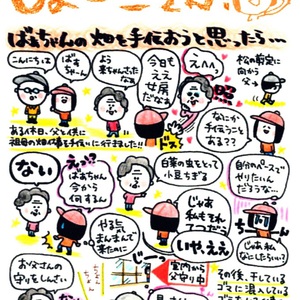 ばぁちゃんの畑を手伝おうと思ったら…
こんにちは
ばぁ
ちゃーん
よう
来ちゃんさった
なぁ
今日も
ええ女
だなぁ
えへへっ
照
松の剪定に
向かう
父→
ある休日、父と供に
祖母の畑仕事を手伝いに行きました!!
ドスッ
なにか
手伝うこと
ある??
ない
えぇ!?
ばあちゃん
今から
何するん
白菜の虫をとって
小豆もぎる
自分のペースで
やりたいん
だろうな…
やる気
まんまんで
来たのに
じゃあ
私もそれ
てつだう
ちーん
いやええ
じーっ
じゃあ私
なにしたら
いい?
お父さんの
守りをしんさい
室内から
父守り中
その後、干している
ゴミに混入している